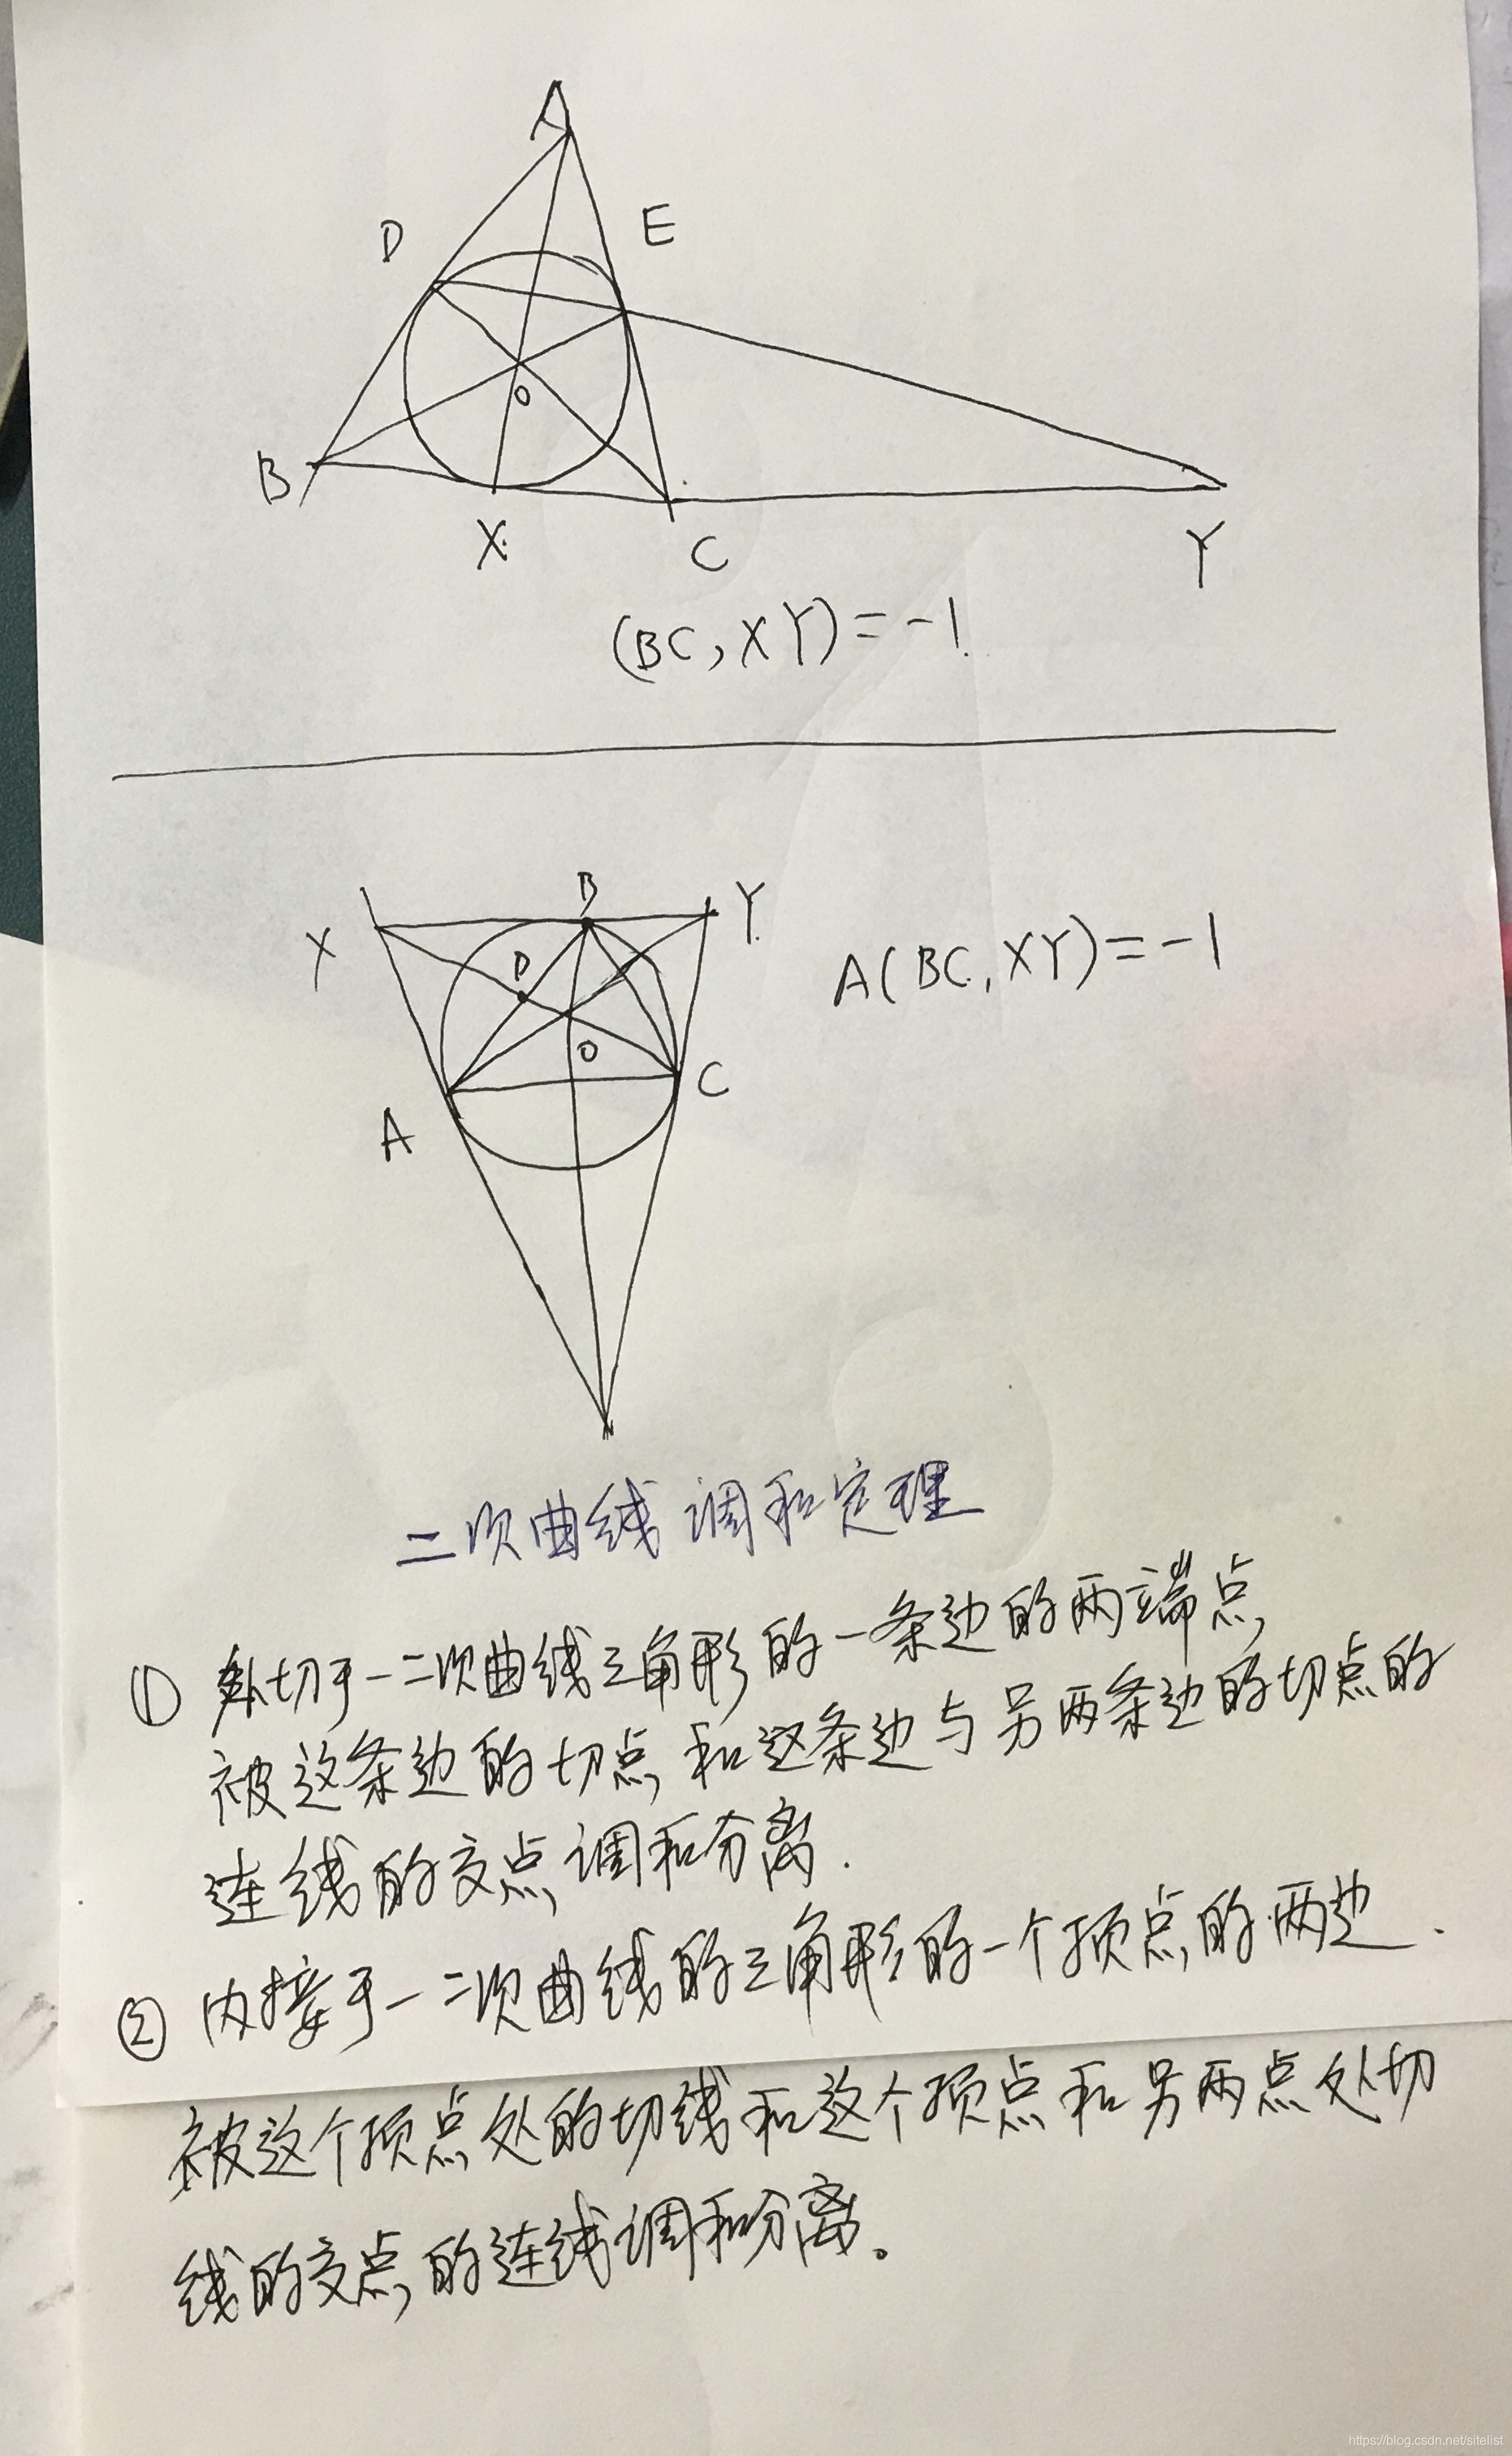 A
D
E
B
O
X
C
Y
(BC,XY)=-1.
X
B
Y
D
A(BC,XY)=-1
O
A
C
二次曲线 调和定理
① 外切于一二次曲线三角形的一条边的两端点,
被这条边的切点,和这条边与另两条边的切点的
连线的交点,调和分离.
② 内接于一二次曲线的三角形的一个顶点,的两边.
被这个顶点处的切线和这个顶点和另两点处切
线的交点,的连线调和分离。
https://blog.csdn.net/sitelist